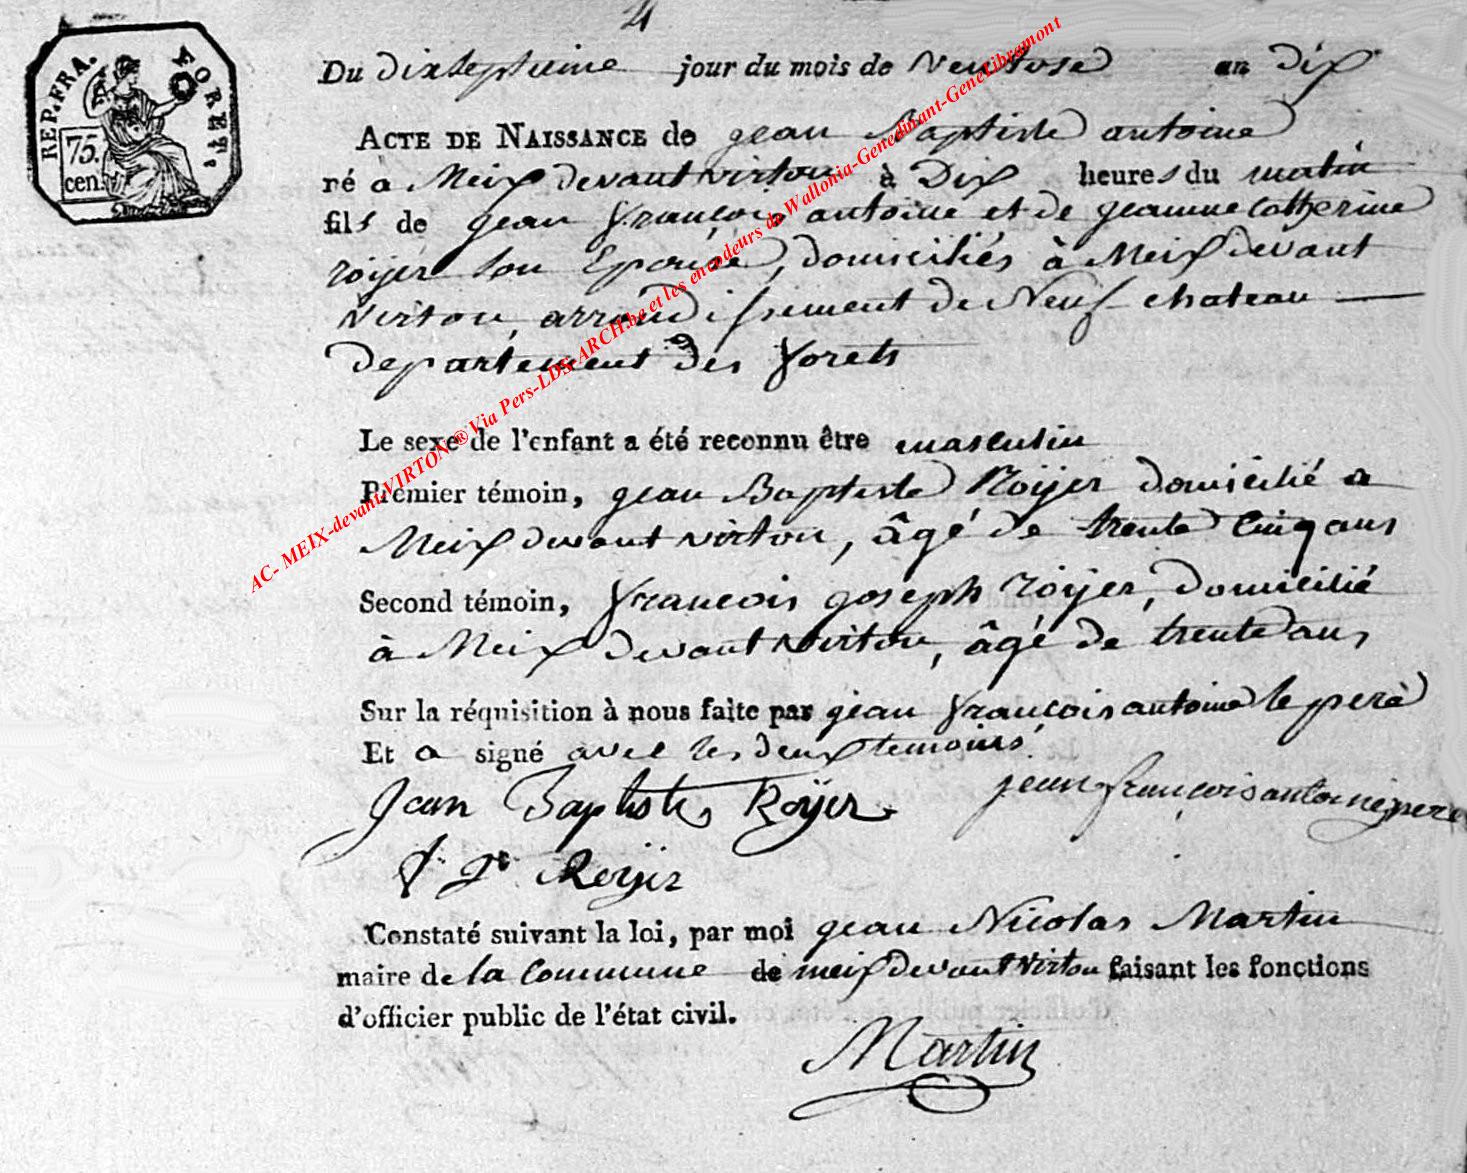 4
REP. FRA. FORETS
75.
cen.
Du dixseptieme jour du mois de Ventose an dix
ACTE DE NAISSANCE de jean Baptiste antoine
né a Meix devant virton à Dix heures du matin
fils de jean françois antoine et de jeanne Catherine
roijer son Epouse, domiciliés à Meix devant
Virton, arrondissement de Neuf chateau
departement des forets
Le sexe de l'enfant a été reconnu être masculin
Premier témoin, jean Baptiste Roijer domicilié a
Meix devant virton, âgé de trente Cinq ans
Second témoin, francois joseph roijer, domicilié
à Meix devant virton, âgé de trente ans,
Sur la réquisition à nous faite par jean françois antoine le pere
Et a signé avec les deux temoins
Jean Baptiste Roÿer jean françois antoine pere
f. Jh Roÿer
Constaté suivant la loi, par moi jean Nicolas Martin
maire de la Commune de meix devant virton faisant les fonctions
d'officier public de l'état civil.
Martin
AC- MEIX-devant-VIRTON®Via Pers-LDS-ARCH.be et les encodeurs de Wallonia-Genedinant-GeneLibramont